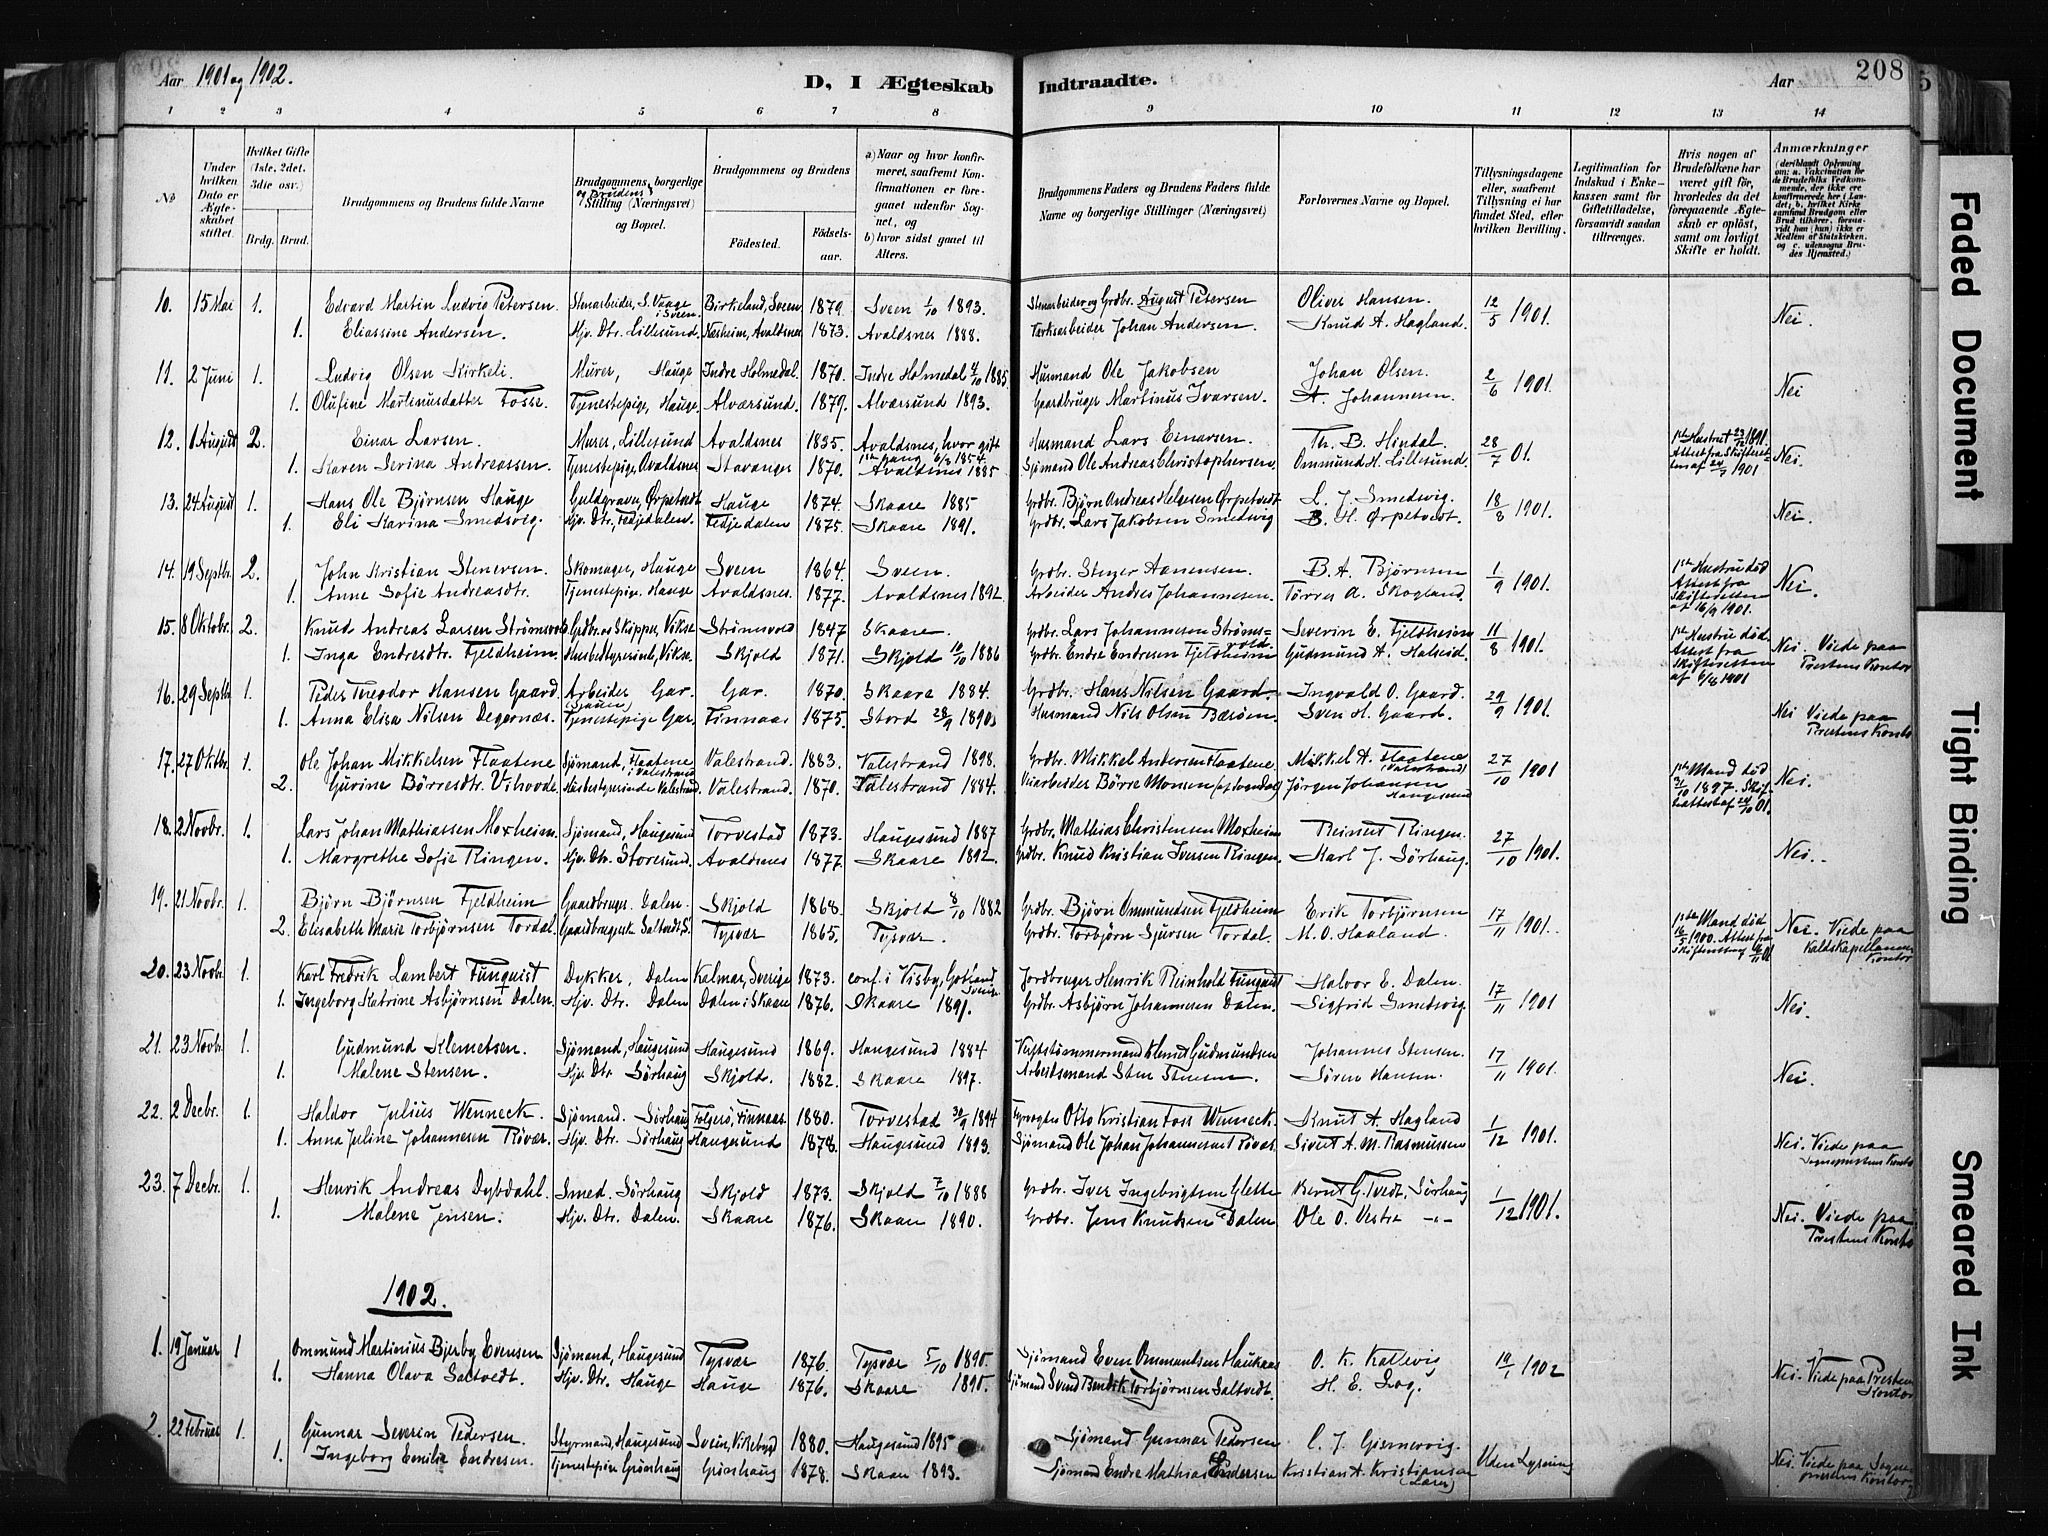 Aar 1901 og 1902.
D, I Ægteskab
Indtraadte.
Aar
208
5
1 2 3 4 5 6 7 8 9 10 11 12 13 14
No
Under hvilken Dato er Ægteskabet stiftet.
Hvilket Gifte (1ste, 2det, 3die osv.)
Brdg. Brud.
Brudgommens og Brudens fulde Navne
Brudgommens og Brudens borgerlige Stilling (Næringsvei) og Bopæl.
Brudgommens og Brudens
Födested.
Födselsaar.
a) Naar og hvor konfirmeret, saafremt Konfirmationen er foregaaet udenfor Sognet, og
b) hvor sidst gaaet til Alters.
Brudgommens Faders og Brudens Faders fulde Navne og borgerlige Stillinger (Næringsvei)
Forlovernes Navne og Bopæl.
Tillysningsdagene eller, saafremt Tillysning ei har fundet Sted, efter hvilken Bevilling.
Legitimation for Indskud i Enkekassen samt for Giftetilladelse, forsaavidt saadan tiltrænges.
Hvis nogen af Brudefolkene har været gift før, hvorledes da det foregaaende Ægteskab er opløst, samt om lovligt Skifte er holdt.
Anmærkninger
(deriblandt Oplysning om: a. Vakcination for de Brudefolks Vedkommende, der ikke ere konfirmerede her i Landet; b. hvilket Kirkesamfund Brudgom eller Brud tilhører, forsaavidt han (hun) ikke er Medlem af Statskirken, og c. udensogns Brudes Hjemsted.)
10. 15 Mai 1. Edvard Martin Ludvig Petersen. Stenarbeider, S. Vaage i Sveen. Birkeland, Sveen 1879. Sveen 1/10 1893. Stenarbeider og Grdbr. August Petersen Oliver Hansen. 12/5 1901. Nei.
1. Eliassine Andersen. Hjv. Dtr. Lillesund. Næsheim, Avaldsnes 1873. Avaldsnes 1888. Værksarbeider Johan Andersen. Knud A. Hagland.
11. 2 Juni 1. Ludvig Olsen Kirkeli. Murer, Hauge Indre Holmedal. 1870. Indre Holmedal 4/10 1885. Husmand Ole Jakobsen Johan Olsen. 2/6 1901. Nei
1. Olufine Martinusdatter Fosse. Tjenestepige, Hauge. Alværsund. 1879. Alværsund 1893. Gaardbruger Martinus Ivarsen. A. Johannesen.
12. 1 August 2. Einar Larsen. Murer, Lillesund Avaldsnes 1835. Avaldsnes, hvor gift 1ste Gang 6/8 1854. Husmand Lars Einarsen. Th. B. Hindal. 28/7 01. 1ste Hustru † 23/12 1891. Attest fra Skifteretten af 24/7 1901 Nei.
1. Karen Serina Andreassen. Tjenestepige, Avaldsnes Stavanger 1870. Avaldsnes 1885 Sjömand Ole Andreas Christophersen. Ommund H. Lillesund.
13. 24 August 1. Hans Ole Bjørnsen Hauge Guldgraver, Ørpetvedt Hauge 1874. Skaare 1885 Grdbr. Bjørn Andreas Helgesen Ørpetvedt L. J. Smedsvig. 18/8 1901. Nei.
1. Eli Karina Smedsvig. Hjv. Dtr. Fedjedalen. Fedjedalen 1875. Skaare 1891. Grdbr. Lars Jakobsen Smedsvig B. H. Ørpetvedt.
14. 19 Septbr. 2. John Kristian Stenersen. Skomager, Hauge Sveen 1864. Sveen. Grdbr. Stener Aanensen. B. A. Bjørnsen 1/9 1901. 1ste Hustru död Attest fra Skifteretten af 16/9 1901. Nei.
1. Anne Sofie Andreasdtr. Tjenestepig. Hauge Avaldsnes. 1877. Avaldsnes 1892. Arbeider Andreas Johannesen. Törres A. Skogland.
15. 8 Oktobr. 2. Knud Andreas Larsen Strömsvold Grdbr. og Skipper, Vikse Strömsvold 1847 Skaare. Grdbr. Lars Johannesen Strömsvold. Severin E. Fjeldheim 11/8 1901. 1ste Hustru död. Attest fra Skifteretten af 6/8 1901 Nei. Viede paa Prestens Kontor
1. Inga Endresdtr. Fjeldheim. Husbestyrerinde, Vikse. Skjold 1871. Skjold 10/10 1886 Grdbr. Endre Endresen Fjeldheim Gudmund A. Halseid.
16. 29 Septbr 1. Peder Theodor Hansen Gaard. Arbeider Gar. Gar. 1870. Skaare 1884. Grdbr. Hans Nilsen Gaard. Ingvald O. Gaard. 29/9 1901. Nei Viede paa Prestens Kontor
1. Anna Elisa Nilsen Degernæs. Tjenestepige Gar. Finnaas 1875. Stord 28/9 1890. Husmand Nils Olsen Bæröen. Sven H. Gaard.
17. 27 Oktbr. 1. Ole Johan Mikkelsen Flaatene Sjömand, Flaatene i Valestrand Valestrand. 1883. Valestrand 1898. Grdbr. Mikkel Andersen Flaatene Mikkel A. Flaatene (Valestrand) 27/10 1901 1ste Mand död 31/10 1897. Skifteattest af 24/10 01. Nei.
2. Gurine Börresdtr. Vihovde. Husbestyrerinde Valestrand. Valestrand. 1870. Valestrand 1884. Veiarbeider Börre Monsen (af Sogndal) Jörgen Johansen Haugesund
18. 2 Novbr. 1. Lars Johan Mathiassen Moxheim. Sjömand, Haugesund Torvestad 1873. Haugesund 1887 Grdbr. Mathias Christensen Moxheim Reinert Ringen. 27/10 1901. Nei.
1. Margrethe Sofie Ringen. Hjv. Dtr. Storesund. Avaldsnes 1877. Skaare 1892. Grdbr. Knud Kristian Iversen Ringen. Karl J. Sörhaug.
19. 21 Novbr. 1. Björn Björnsen Fjeldheim Gaardbruger. Dalen. Skjold 1868. Skjold 8/10 1882 Grdbr. Björn Ommundsen Fjeldheim Erik Torbjörnsen 17/11 1901. 1ste Mand död 16/5 1900. Attest fra Skifteretten 6/11 01 Nei. Viede paa Kaldskapellanens Kontor
2. Elisabeth Marie Torbjörnsen Tordal. Gaardbrugersk. Saltvedt S. Tysvær 1865. Tysvær. Grdbr. Torbjörn Sjursen Tordal. M. O. Haaland.
20. 23 Novbr. 1. Karl Fredrik Lambert Funquist Dykker, Dalen Kalmar, Sverige 1873. conf. i Visby, Gotland Sverige. Jordbruger Henrik Reinhold Funquist Halvor E. Dalen. 17/11 1901 Nei.
1. Ingeborg Katrine Asbjörnsen Dalen. Hjv. Dtr. Dalen Dalen i Skaare 1876. Skaare 1891. Grdbr. Asbjörn Johannesen Dalen. Sigfrid Smedsvig.
21. 23 Novbr. 1. Gudmund Klemetsen. Sjömand, Haugesund Haugesund 1869. Haugesund 1884 Klemet Gudmundsen Johannes Stensen. 17/11 1901. Nei.
1. Malene Stensen. Hjv. Dtr Sörhaug Skjold. 1882. Skaare 1897. Arbeidsmand Sten Stensen. Sören Hansen.
22. 2 Decbr. 1. Haldor Julius Wenneck. Sjömand. Sörhaug Folgerö, Finnaas. 1880. Torvestad 30/9 1894 Fyrvogter Otto Kristian Foss Wenneck. Knut A. Hagland 1/12 1901. Nei. Viede paa Sogneprestens Kontor
1. Anna Juline Johannesen Rövær. Hjv. Dtr. Sörhaug Haugesund 1878. Haugesund 1893. Sjömand Ole Johan Johannesen Rövær. Sivert A. M. Rasmussen
23. 7 Decbr. 1. Henrik Andreas Dybdahl. Smed. Sörhaug Skjold 1873. Skjold 7/10 1888 Grdbr. Iver Ingebrigtsen Glette Bernt G. Tvedt, Sörhaug 1/12 1901. Nei. Viede paa Prestens Kontor
1. Malene Jensen. Hjv. Dtr. Dalen. Skaare 1876. Skaare 1890. Grdbr. Jens Knudsen Dalen Ole O. Vestre -"-
1902.
1. 19 Januar 1 Ommund Martinius Bjerby Evensen Sjömand, Haugesund Tysvær 1876. Tysvær 5/10 1890. Sjömand Even Ommundsen Haukaas O. K. Kallevig 19/1 1902 Nei. Viede paa Prestens Kontor
1. Hanna Olava Saltvedt. Hjv. Dtr. Hauge Hauge 1876. Skaare 1890. Sjömand Svend Bendik Torbjörnsen Saltvedt. H. E. Log.
2. 22 Februar 1. Gunnar Severin Pedersen. Styrmand, Haugesund Sveen, Vikebygd 1880. Haugesund 1895 Sjömand Gunnar Pedersen C. J. Gismervig. Uden Lysning Nei. Viede paa Sogneprestens Kontor
1. Ingeborg Emilie Endresen. Tjenestepige Grönhaug Grönhaug 1878. Skaare 1893. Sjömand Endre Mathias Endresen Kristian A. Kristiansen (Lærer)
Faded Document
Tight Binding
Smeared Ink